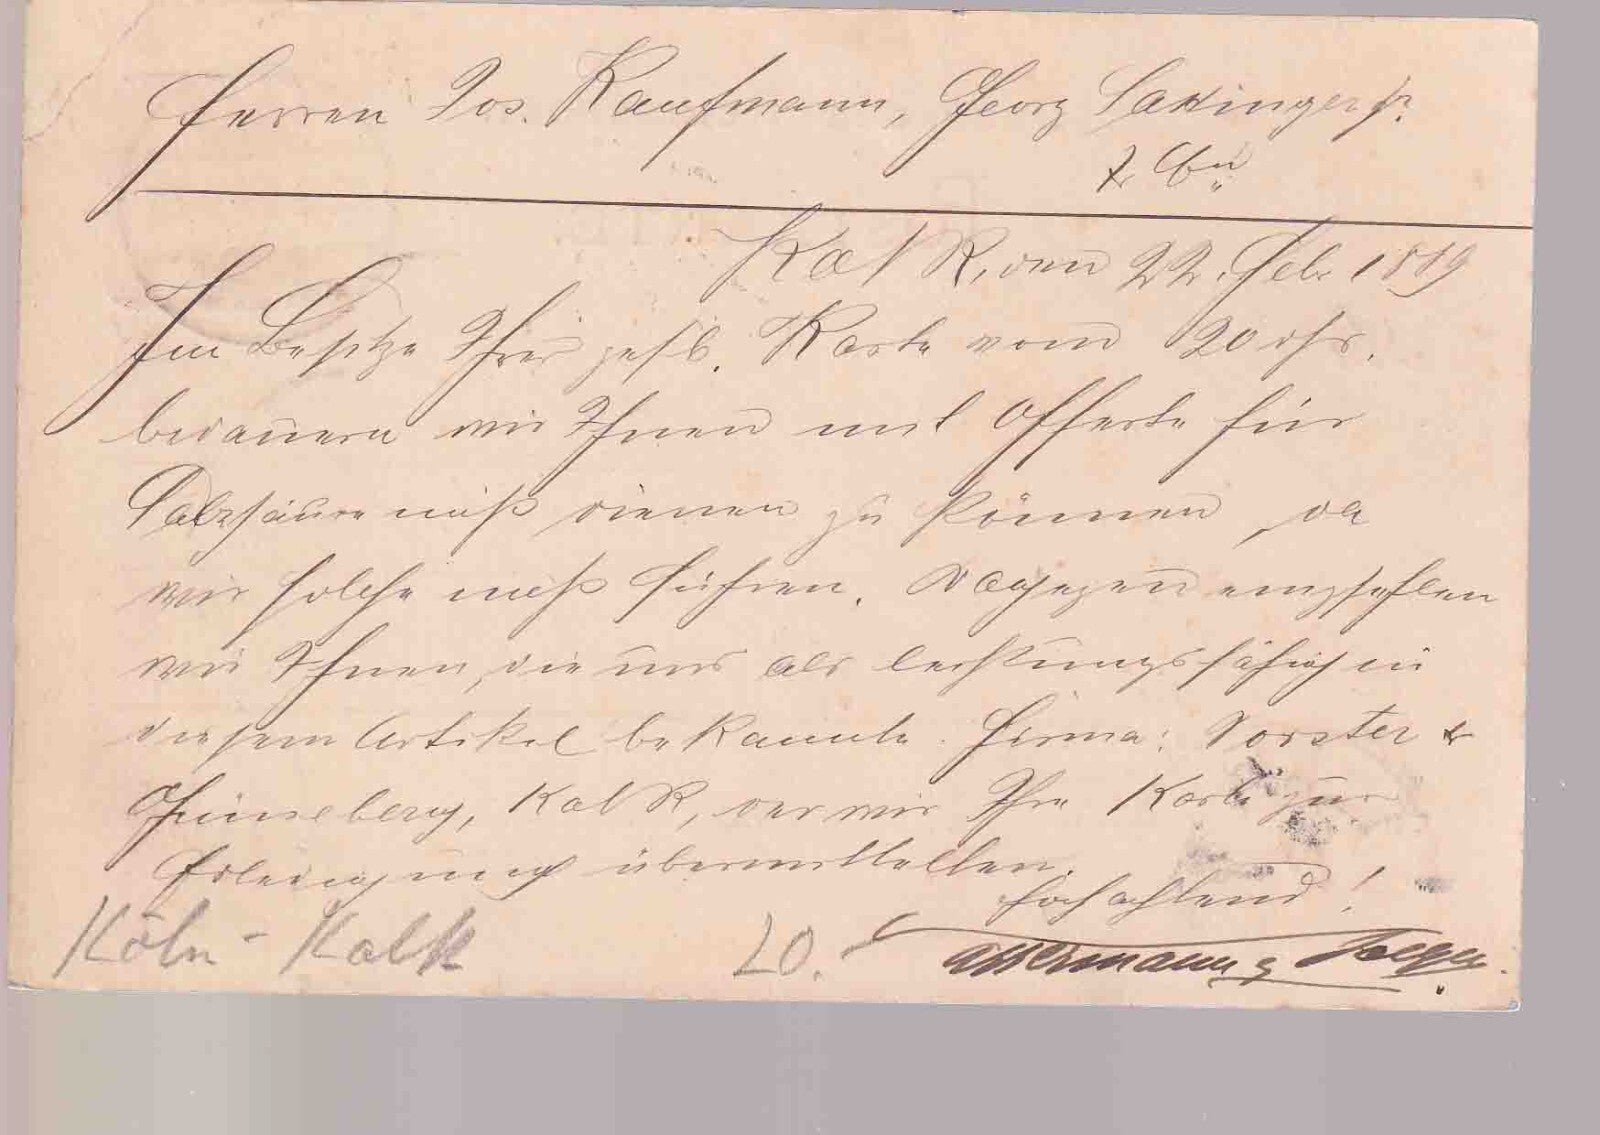 Herren Jos. Kaufmann, Georg
& Co
Kalk, den 22. Feb. 1889
Im Besitze Ihrer gefl. Karte vom 20 dss.
bedauern wir Ihnen mit Offerte für
Salzsäure nicht dienen zu können, da
wir solche nicht führen. Dagegen empfehlen
wir Ihnen, die uns als leistungsfähig in
diesem Artikel bekannte Firma: Vorster &
Grüneberg, Kalk, der wir Ihre Karte zur
Erledigung übermittelten.
Hochachtend!
Köln - Kalk
20.-